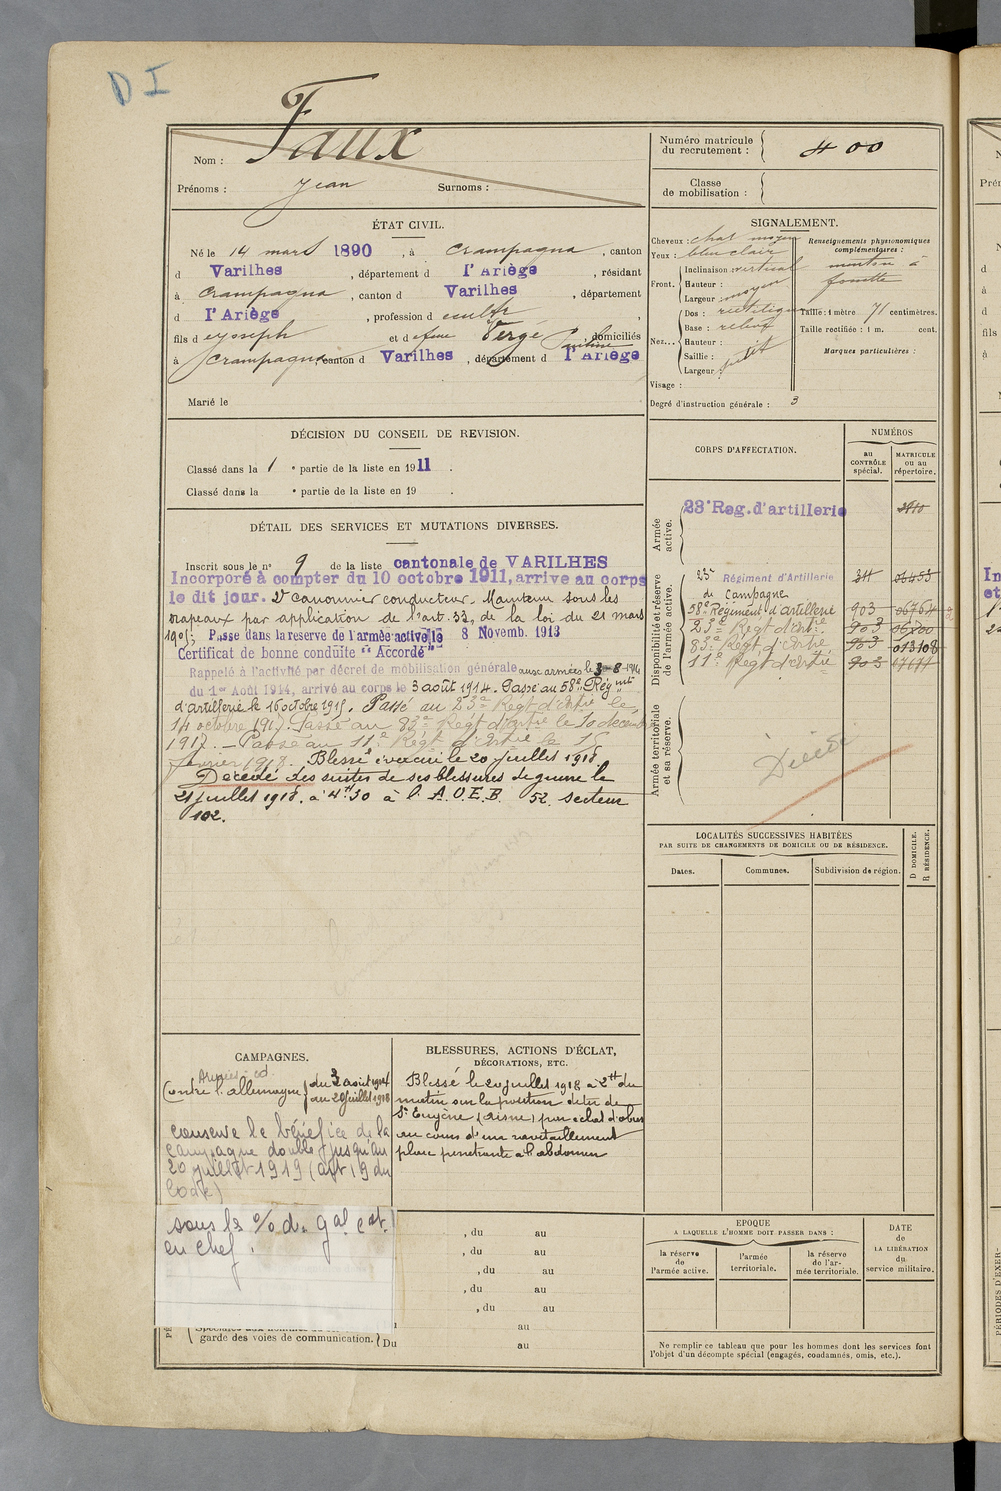 D I
Nom : Faux
Prénoms : Jean Surnoms :
Numéro matricule du recrutement : 400
Classe de mobilisation :
ÉTAT CIVIL.
Né le 14 mars 1890, à Crampagna, canton
d Varilhes, département d l'Ariège, résidant
à Crampagna, canton d Varilhes, département
d l'Ariège, profession d cultr,
fils d e Joseph et d e feue Vergé Pauline domiciliés
à Crampagna, canton d Varilhes, département d l'Ariège
Marié le
SIGNALEMENT.
Cheveux : chat moyen
Yeux : bleu clair
Front. Inclinaison : vertical
Hauteur :
Largeur : moyen
Nez... Dos : rectiligne
Base : relevé
Hauteur :
Saillie : petit
Largeur :
Visage :
Degré d'instruction générale : 3
Renseignements physionomiques complémentaires :
menton à fossette
Taille : 1 mètre 71 centimètres.
Taille rectifiée : 1 m. cent.
Marques particulières :
DÉCISION DU CONSEIL DE REVISION.
Classé dans la 1 e partie de la liste en 1911.
Classé dans la e partie de la liste en 19 .
DÉTAIL DES SERVICES ET MUTATIONS DIVERSES.
Inscrit sous le n° 9 de la liste cantonale de VARILHES
Incorporé à compter du 10 octobre 1911, arrive au corps
le dit jour. 2e canonnier conducteur. Maintenu sous les
drapeaux par application de l'art. 33, de la loi du 21 mars
1905; Passe dans la reserve de l'armée active le 8 Novemb. 1913
Certificat de bonne conduite "Accordé"
Rappelé à l'activité par décret de mobilisation générale aux armées le 3-8-1914
du 1er Août 1914, arrivé au corps le 3 août 1914. Passé au 58e Régmt
d'artillerie le 16 octobre 1915. Passé au 23e Régt d'artie le
14 octobre 1917. Passé au 83e Régt d'artie le 10 décembre
1917. — Passé au 11e Régt d'artie le 15
février 1918. Blessé évacué le 20 juillet 1918
Décédé des suites de ses blessures de guerre le
21 juillet 1918, à 4h.30 à l'A.O.E.B. 52 secteur
102.
CORPS D'AFFECTATION.
NUMÉROS
au CONTRÔLE spécial.
MATRICULE ou au répertoire.
Armée active.
23e Reg. d'artillerie
Disponibilité et réserve de l'armée active.
23e Régiment d'Artillerie 311 06453
de Campagne
58e Régiment d'artillerie 903 06764
23e Régt d'artie 903 06700
83e Régt d'artie 903 013108
11e Régt d'artie 903
Armée territoriale et sa réserve.
Décédé
LOCALITÉS SUCCESSIVES HABITÉES
PAR SUITE DE CHANGEMENTS DE DOMICILE OU DE RÉSIDENCE.
Dates. Communes. Subdivision de région.
D DOMICILE. R RÉSIDENCE.
CAMPAGNES.
Armées: ed.
Contre l'allemagne du 3 août 1914
au 20 juillet 1918
conserve le bénéfice de la
campagne double jusqu'au
20 juillet 1919 (art 19 du
Code)
sous le c/o du gal cdt
en chef.
BLESSURES, ACTIONS D'ÉCLAT,
DÉCORATIONS, ETC.
Blessé le 20 juillet 1918 à 2h du
matin sur la position de tir de
St Eugène (Aisne) par éclat d'obus
au cours d'un ravitaillement
plaie pénétrante à l'abdomen
, du au
, du au
, du au
, du au
, du au
au
garde des voies de communication. Du au
EPOQUE
A LAQUELLE L'HOMME DOIT PASSER DANS :
la réserve de l'armée active.
l'armée territoriale.
la réserve de l'armée territoriale.
DATE de LA LIBÉRATION du service militaire.
Ne remplir ce tableau que pour les hommes dont les services font
l'objet d'un décompte spécial (engagés, condamnés, omis, etc.).
PÉRIODES D'EXER-